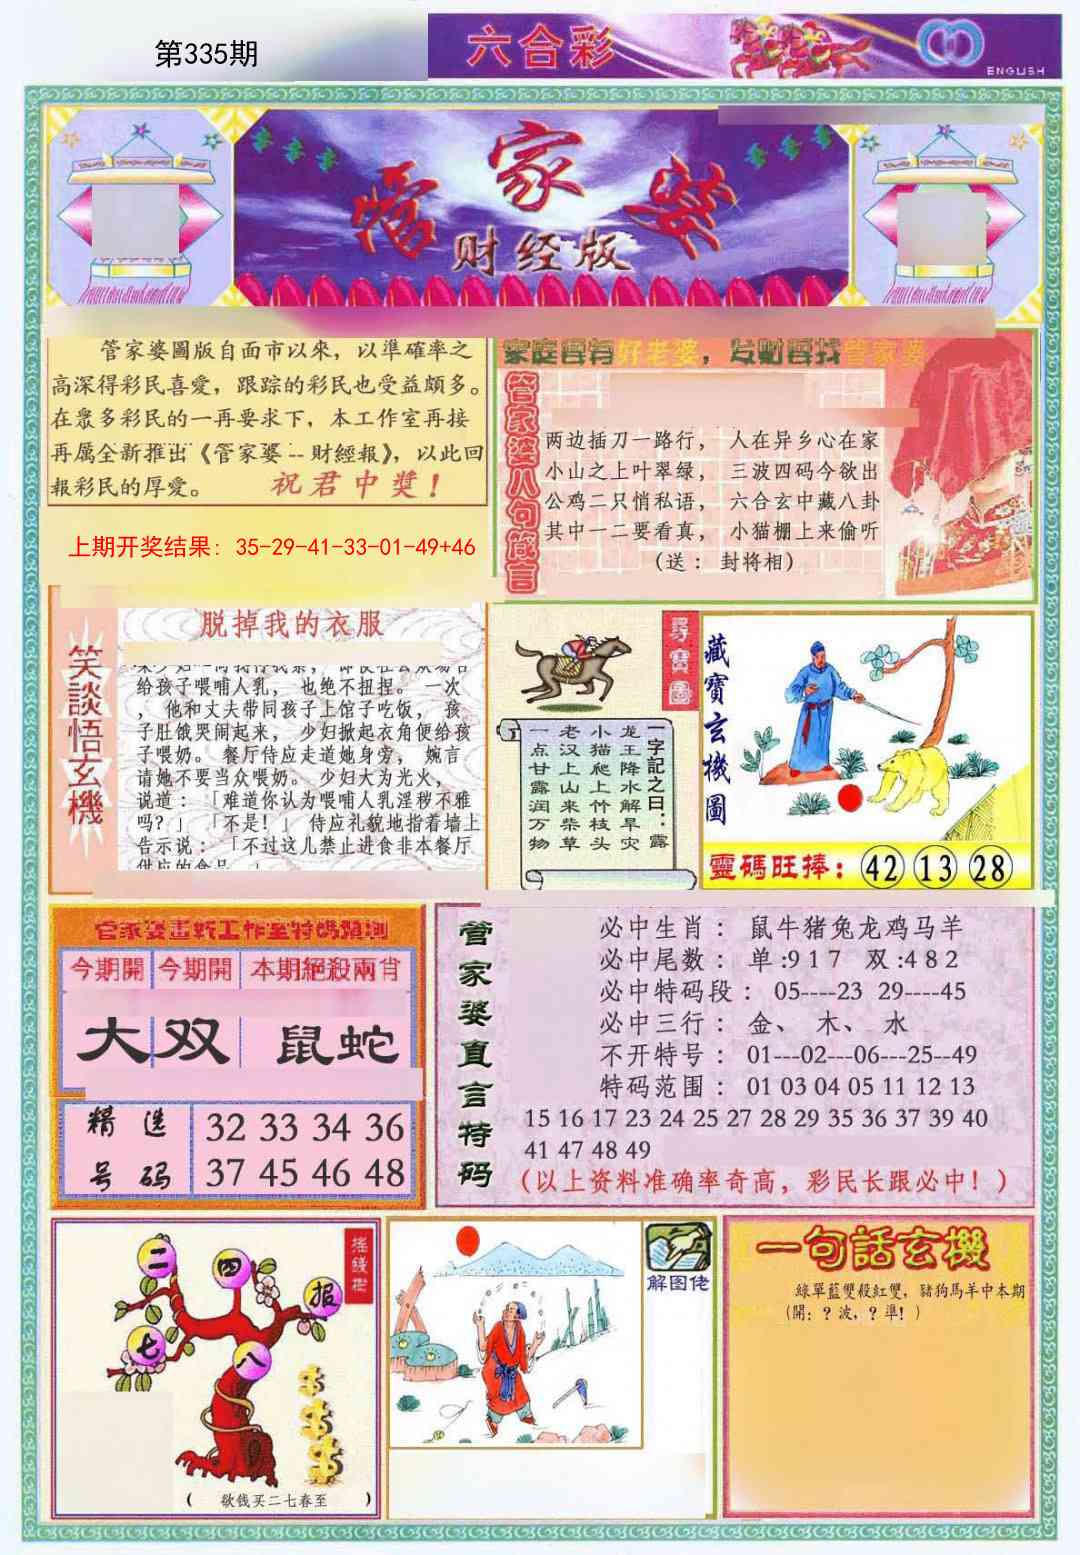 第335期
六合彩
ENGLISH
管家婆
财经版
管家婆圖版自面市以來，以準確率之
高深得彩民喜愛，跟踪的彩民也受益頗多。
在眾多彩民的一再要求下，本工作室再接
再厲全新推出《管家婆--財經報》，以此回
報彩民的厚愛。 祝君中獎！
上期开奖结果：35-29-41-33-01-49+46
家庭會有好老婆，发财要找管家婆
管家婆八句箴言
两边插刀一路行， 人在异乡心在家
小山之上叶翠绿， 三波四码今欲出
公鸡二只悄私语， 六合玄中藏八卦
其中一二要看真， 小猫棚上来偷听
（送： 封将相）
笑談悟玄機
脱掉我的衣服
给孩子喂哺人乳， 也绝不扭捏。 一次
， 他和丈夫带同孩子上馆子吃饭， 孩
子肚饿哭闹起来， 少妇掀起衣角便给孩
子喂奶。 餐厅侍应走道她身旁， 婉言
请她不要当众喂奶。 少妇大为光火，
说道：「难道你认为喂哺人乳淫秽不雅
吗？」「不是！」 侍应礼貌地指着墙上
告示说：「不过这儿禁止进食非本餐厅
供应的食品。」
尋寶圖
一字記之曰：露
龙王降水解旱灾
小猫爬上竹枝头
老汉上山来柴草
一点甘露润万物
藏寶玄機圖
靈碼旺捧：42 13 28
管家婆畫斩工作室特碼預測
今期開 今期開 本期絕殺兩肖
大 双 鼠蛇
精选号码
32 33 34 36
37 45 46 48
管家婆直言特码
必中生肖： 鼠牛猪兔龙鸡马羊
必中尾数： 单:9 1 7 双:4 8 2
必中特码段： 05----23 29----45
必中三行： 金、 木、 水
不开特号： 01---02---06---25--49
特码范围： 01 03 04 05 11 12 13
15 16 17 23 24 25 27 28 29 35 36 37 39 40
41 47 48 49
（以上资料准确率奇高，彩民长跟必中！）
搖錢樹
二 四 报
七 八
（ 欲钱买二七春至 ）
解图佬
一句話玄機
綠單藍雙殺紅雙，豬狗馬羊中本期
（開：？波，？準！）